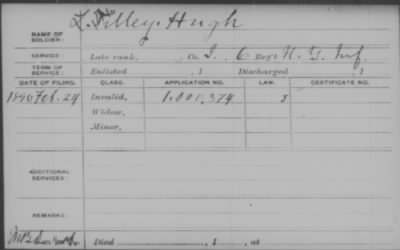 Tilley, Hugh
NAME OF SOLDIER:
SERVICE: Late rank, Co. I, 6 Reg't N. Y. Inf.
TERM OF SERVICE: Enlisted , 1 Discharged , 1
DATE OF FILING. CLASS. APPLICATION NO. LAW. CERTIFICATE NO.
1890 Feb. 24 Invalid, 1.000.374
Widow,
Minor,
ADDITIONAL SERVICES:
REMARKS:
Died , 1 , at